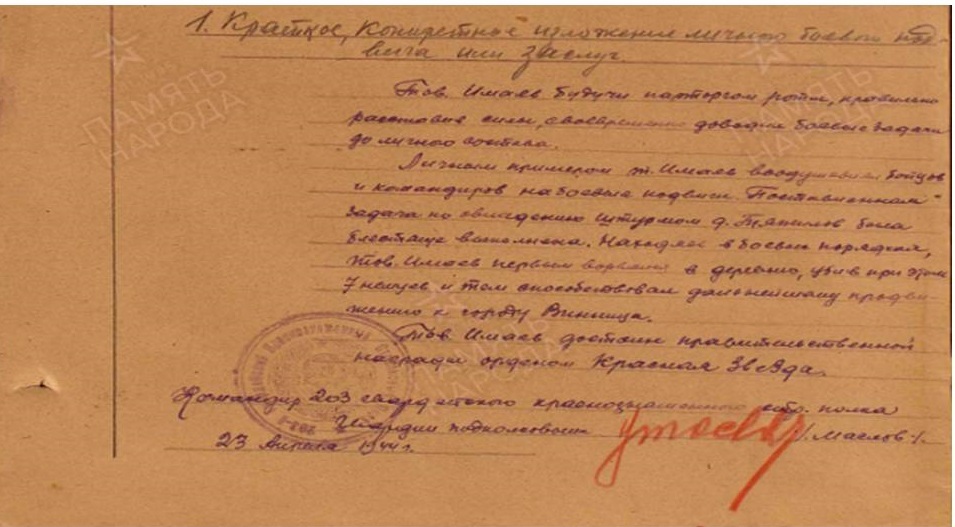 1. Краткое, конкретное изложение личного боевого под-
вига или заслуг.
ПАМЯТЬ
НАРОДА
Тов. Имаев будучи парторгом роты, правильно
расставив силы, своевременно доводил боевые задачи
до личного состава.
Личным примером т. Имаев воодушевлял бойцов
и командиров на боевые подвиги. Поставленная
задача по овладению штурмом д. была
блестяще выполнена. Находясь в боевых порядках,
тов. Имаев первым ворвался в деревню, убив при этом
7 немцев и тем способствовал дальнейшему продви-
жению к городу Винница.
Тов. Имаев достоин правительственной
награды орденом Красная Звезда.
Командир 203 гвардейского краснознаменного полка
Гвардии подполковник /Маслов/.
23 Апреля 1944г.